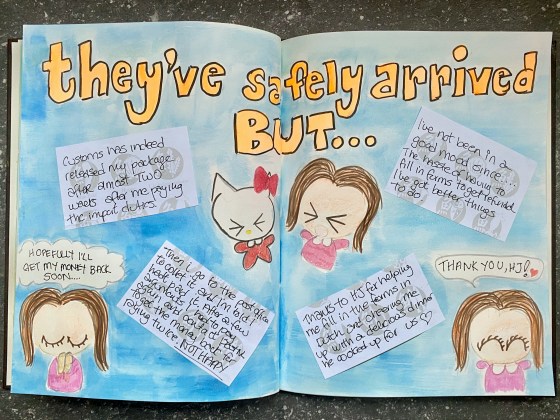 they've safely arrived
BUT...
Customs has indeed
released my package
after almost TWO
weeks after me paying
the import duties.
I've not been in a
good mood since...
The hassle of having to
fill in forms to get refunded.
I've got better things
to do.
HOPEFULLY I'LL
GET MY MONEY BACK
SOON....
Then I go to the post office
to collect it and I'm told to
head back it after a few
to
the money back for
paying twice. NOT HAPPY!
Thanks to HJ for helping
me fill in the forms in
Dutch and cheering me
up with a delicious dinner
he cooked up for us ♡
THANK YOU, HJ! ♥